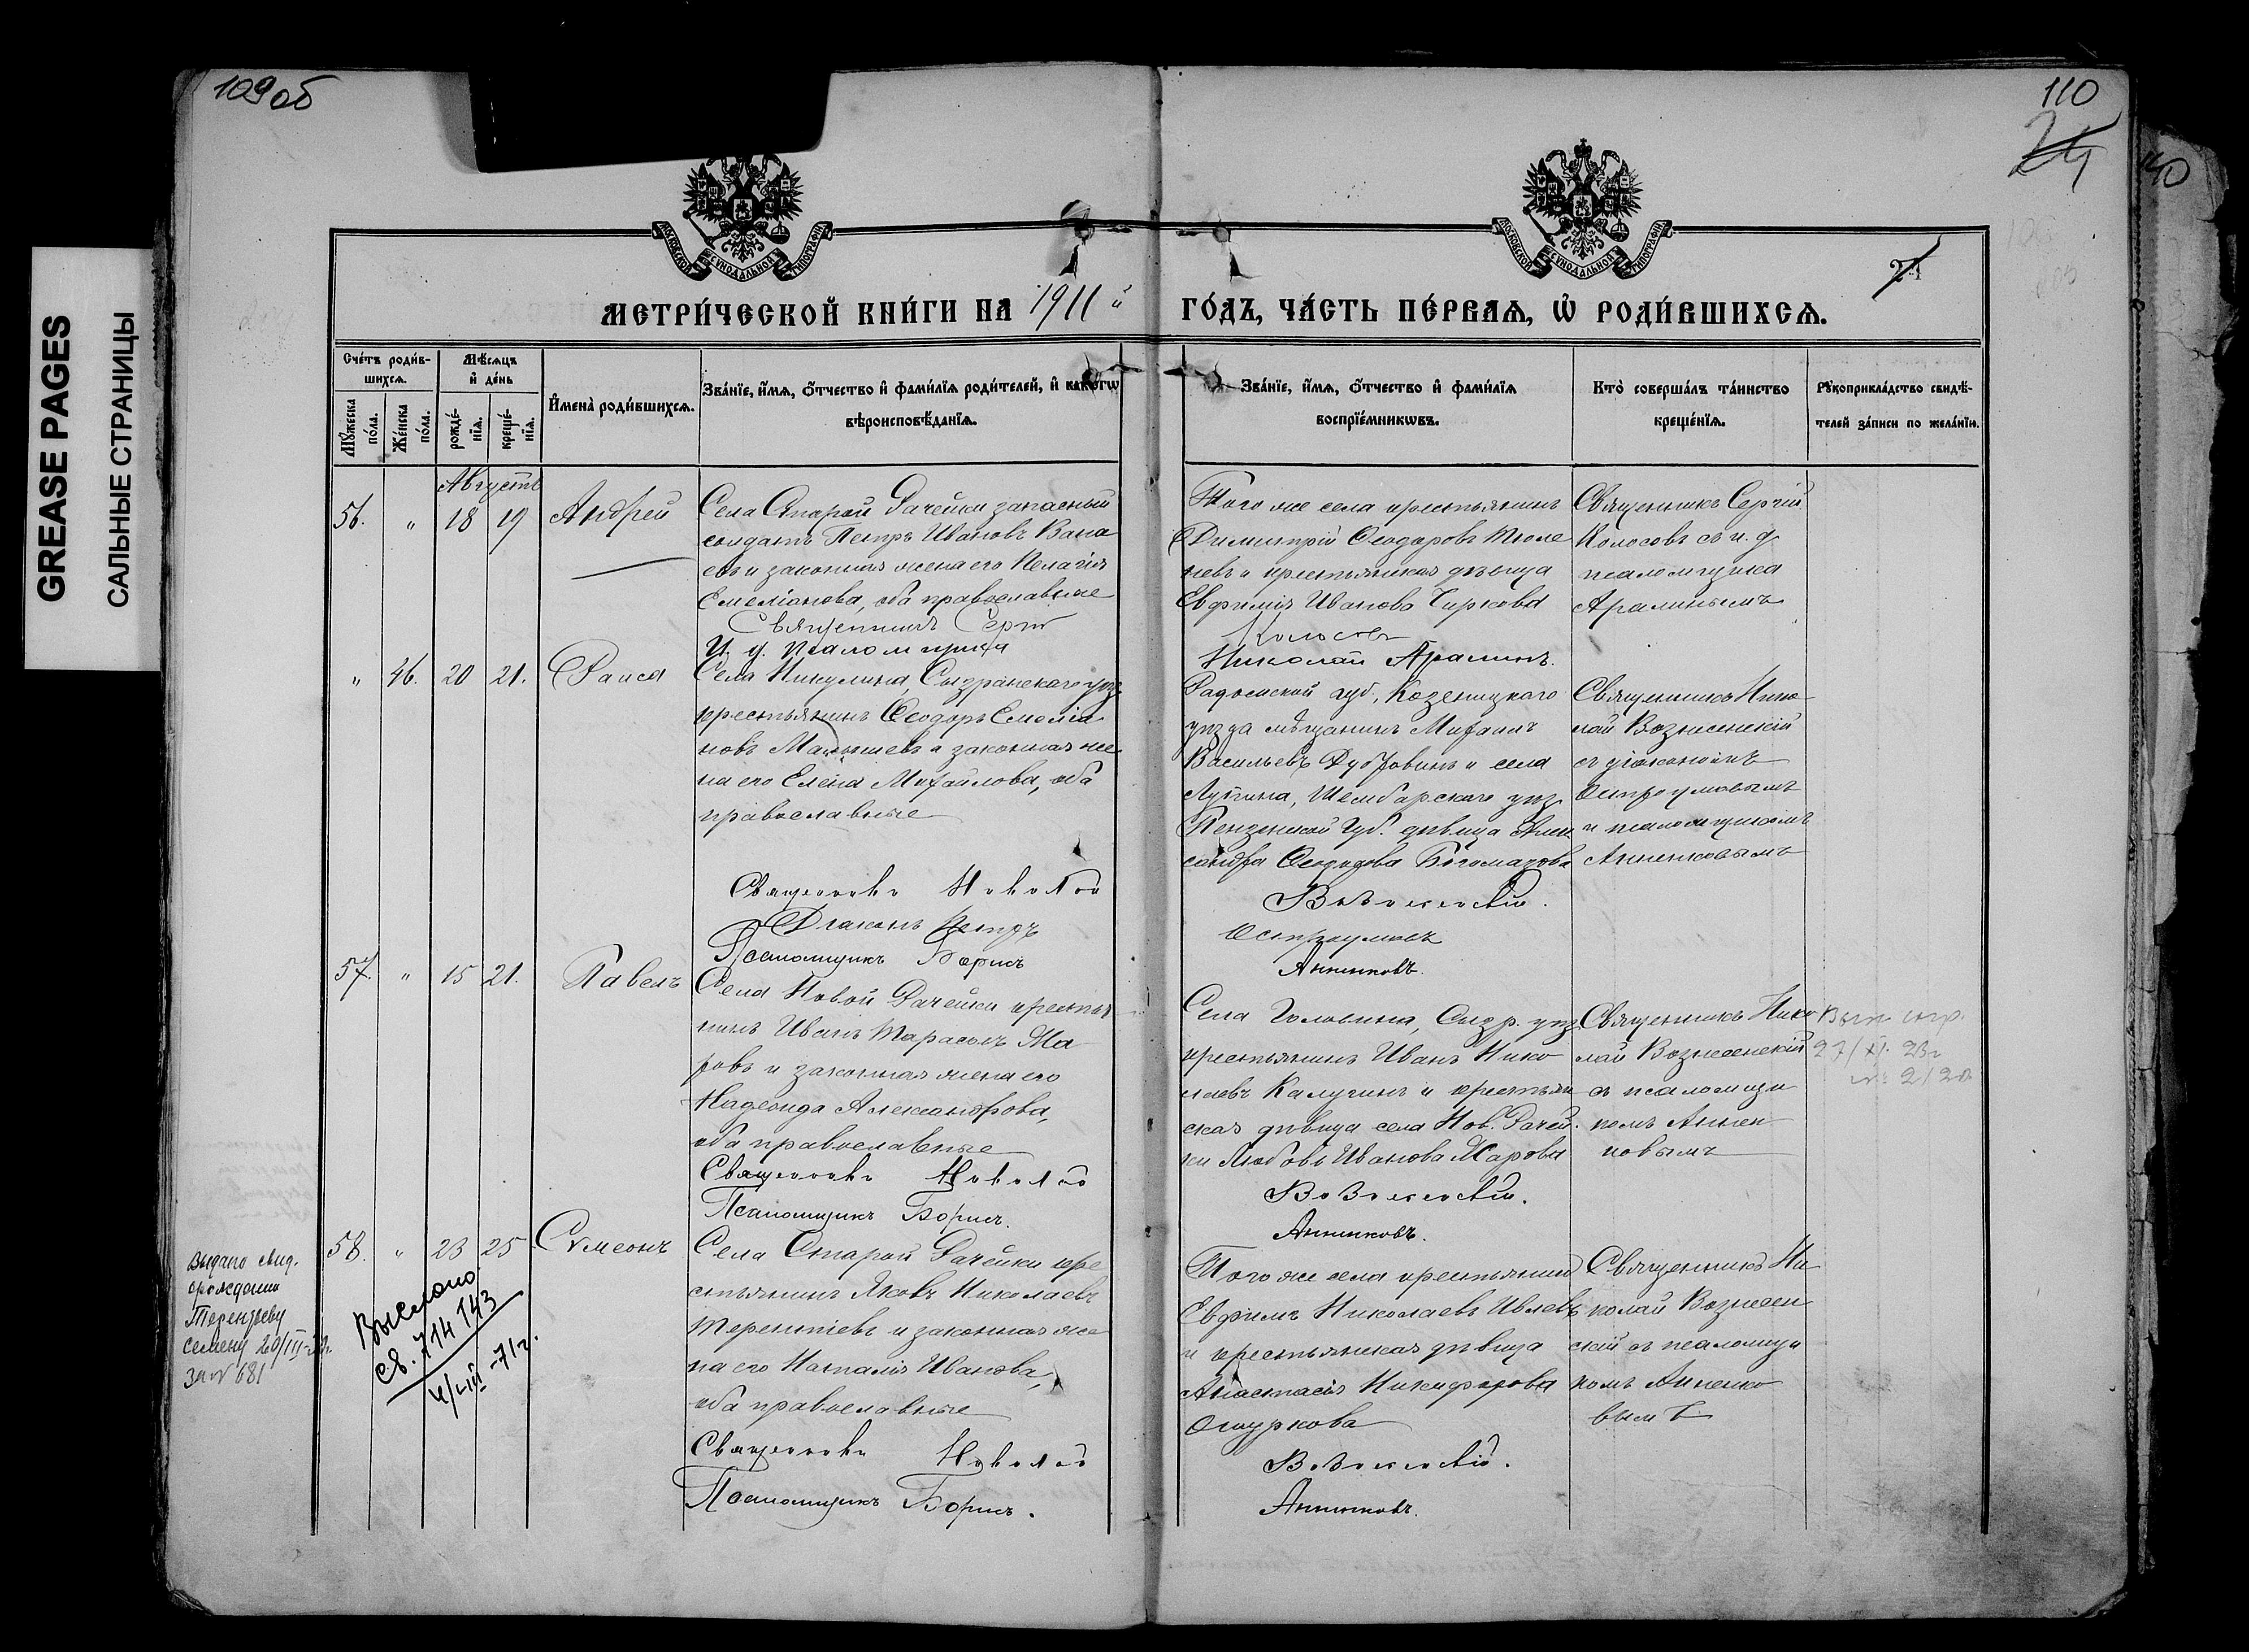 109об
110
24
140
GREASE PAGES
САЛЬНЫЕ СТРАНИЦЫ
МОСКОВСКОЙ СѴНОДАЛЬНОЙ ТИПОГРАФІИ
МОСКОВСКОЙ СѴНОДАЛЬНОЙ ТИПОГРАФІИ
МЕТРИ́ЧЕСКОЙ КНИ́ГИ НА 1911й ГО́ДЪ, ЧА́СТЬ ПЕ́РВАЯ, Ѡ҆ РОДИ́ВШИХСЯ.
Сче́тъ роди́в-
шихся.
Мѣ́сяцъ
и҆ де́нь
Мꙋ́жеска
по́ла.
Же́нска
по́ла.
рожде́-
нїя.
креще́-
нїя.
И҆мена̀ роди́вшихся.
Зва́нїе, и҆́мя, ѻ҆́тчество и҆ фами́лїя роди́телей, и҆ какогѡ
вѣроисповѣ́данїя.
Зва́нїе, и҆́мя, ѻ҆́тчество и҆ фами́лїя
воспрїе́мникѡвъ.
Кто̀ соверша́лъ та́инство
креще́нїя.
Рꙋкоприкла́дство свидѣ́-
телей за́писи по жела́нїю.
Августъ
56. " 18 19 Андрей
Села Старой Рачейки запасный
солдатъ Петръ Ивановъ
и законная жена его Пелагія
Емеліанова, оба православные
Священникъ Сергій
И. д. псаломщика
Того же села крестьянинъ
Димитрій Ѳеодоровъ Тюле
невъ и крестьянская дѣвица
Евфимія Иванова Чиркова
Колосовъ
Николай Аралинъ.
Священникъ Сергій
Колосовъ съ и. д.
псаломщика
Аралинымъ
" 46. 20 21. Раиса
Села Никулина, Сызранскаго уѣз.
крестьянинъ Ѳеодоръ Емеліа
новъ Малышевъ и законная же
на его Елена Михайлова, оба
православные
Священникъ Николай
Діаконъ Петръ
Псаломщикъ Борисъ
Радомской губ., Козеницкаго
уѣзда мѣщанинъ Михаилъ
Васильевъ Дубровинъ и села
Чембарскаго уѣз.
Пензенской губ. дѣвица Алек
сандра Богомазова
Вознесенскій.
Остроумовъ
Анненковъ.
Священникъ Нико
лай Вознесенскій
съ діакономъ
Остроумовымъ
и псаломщикомъ
Анненковымъ
57. " 15 21. Павелъ
Села Новой Рачейки крестья
нинъ Иванъ Тарасовъ Ма
ровъ и законная жена его
Надежда Александрова,
оба православные
Священникъ Николай
Псаломщикъ Борисъ.
Села Головина, Сызр. уѣз.
крестьянинъ Иванъ Нико
лаевъ Калугинъ и крестьян
ская дѣвица села Нов. Рачей
ки Любовь Иванова Марова
Вознесенскій.
Анненковъ.
Священникъ Нико
лай Вознесенскій
съ псаломщи
комъ Аннен
ковымъ
27/XI. 23г
№ 2120
58. " 23 25 Сѵмеонъ
Села Старой Рачейки кре
стьянинъ Яковъ Николаевъ
Терентіевъ и законная же
на его Наталія Иванова,
оба православные
Священникъ Николай
Псаломщикъ Борисъ.
Того же села крестьянинъ
Евфимъ Николаевъ Ивлевъ
и крестьянская дѣвица
Анастасія Никифорова
Ошуркова
Вознесенскій.
Анненковъ.
Священникъ Ни
колай Вознесен
скій съ псаломщи
комъ Анненко
вымъ
Выдано свид.
орождении
Терентьеву
Семену 20/III
за № 681
Выслано
св. 714143
4/VIII-71г.